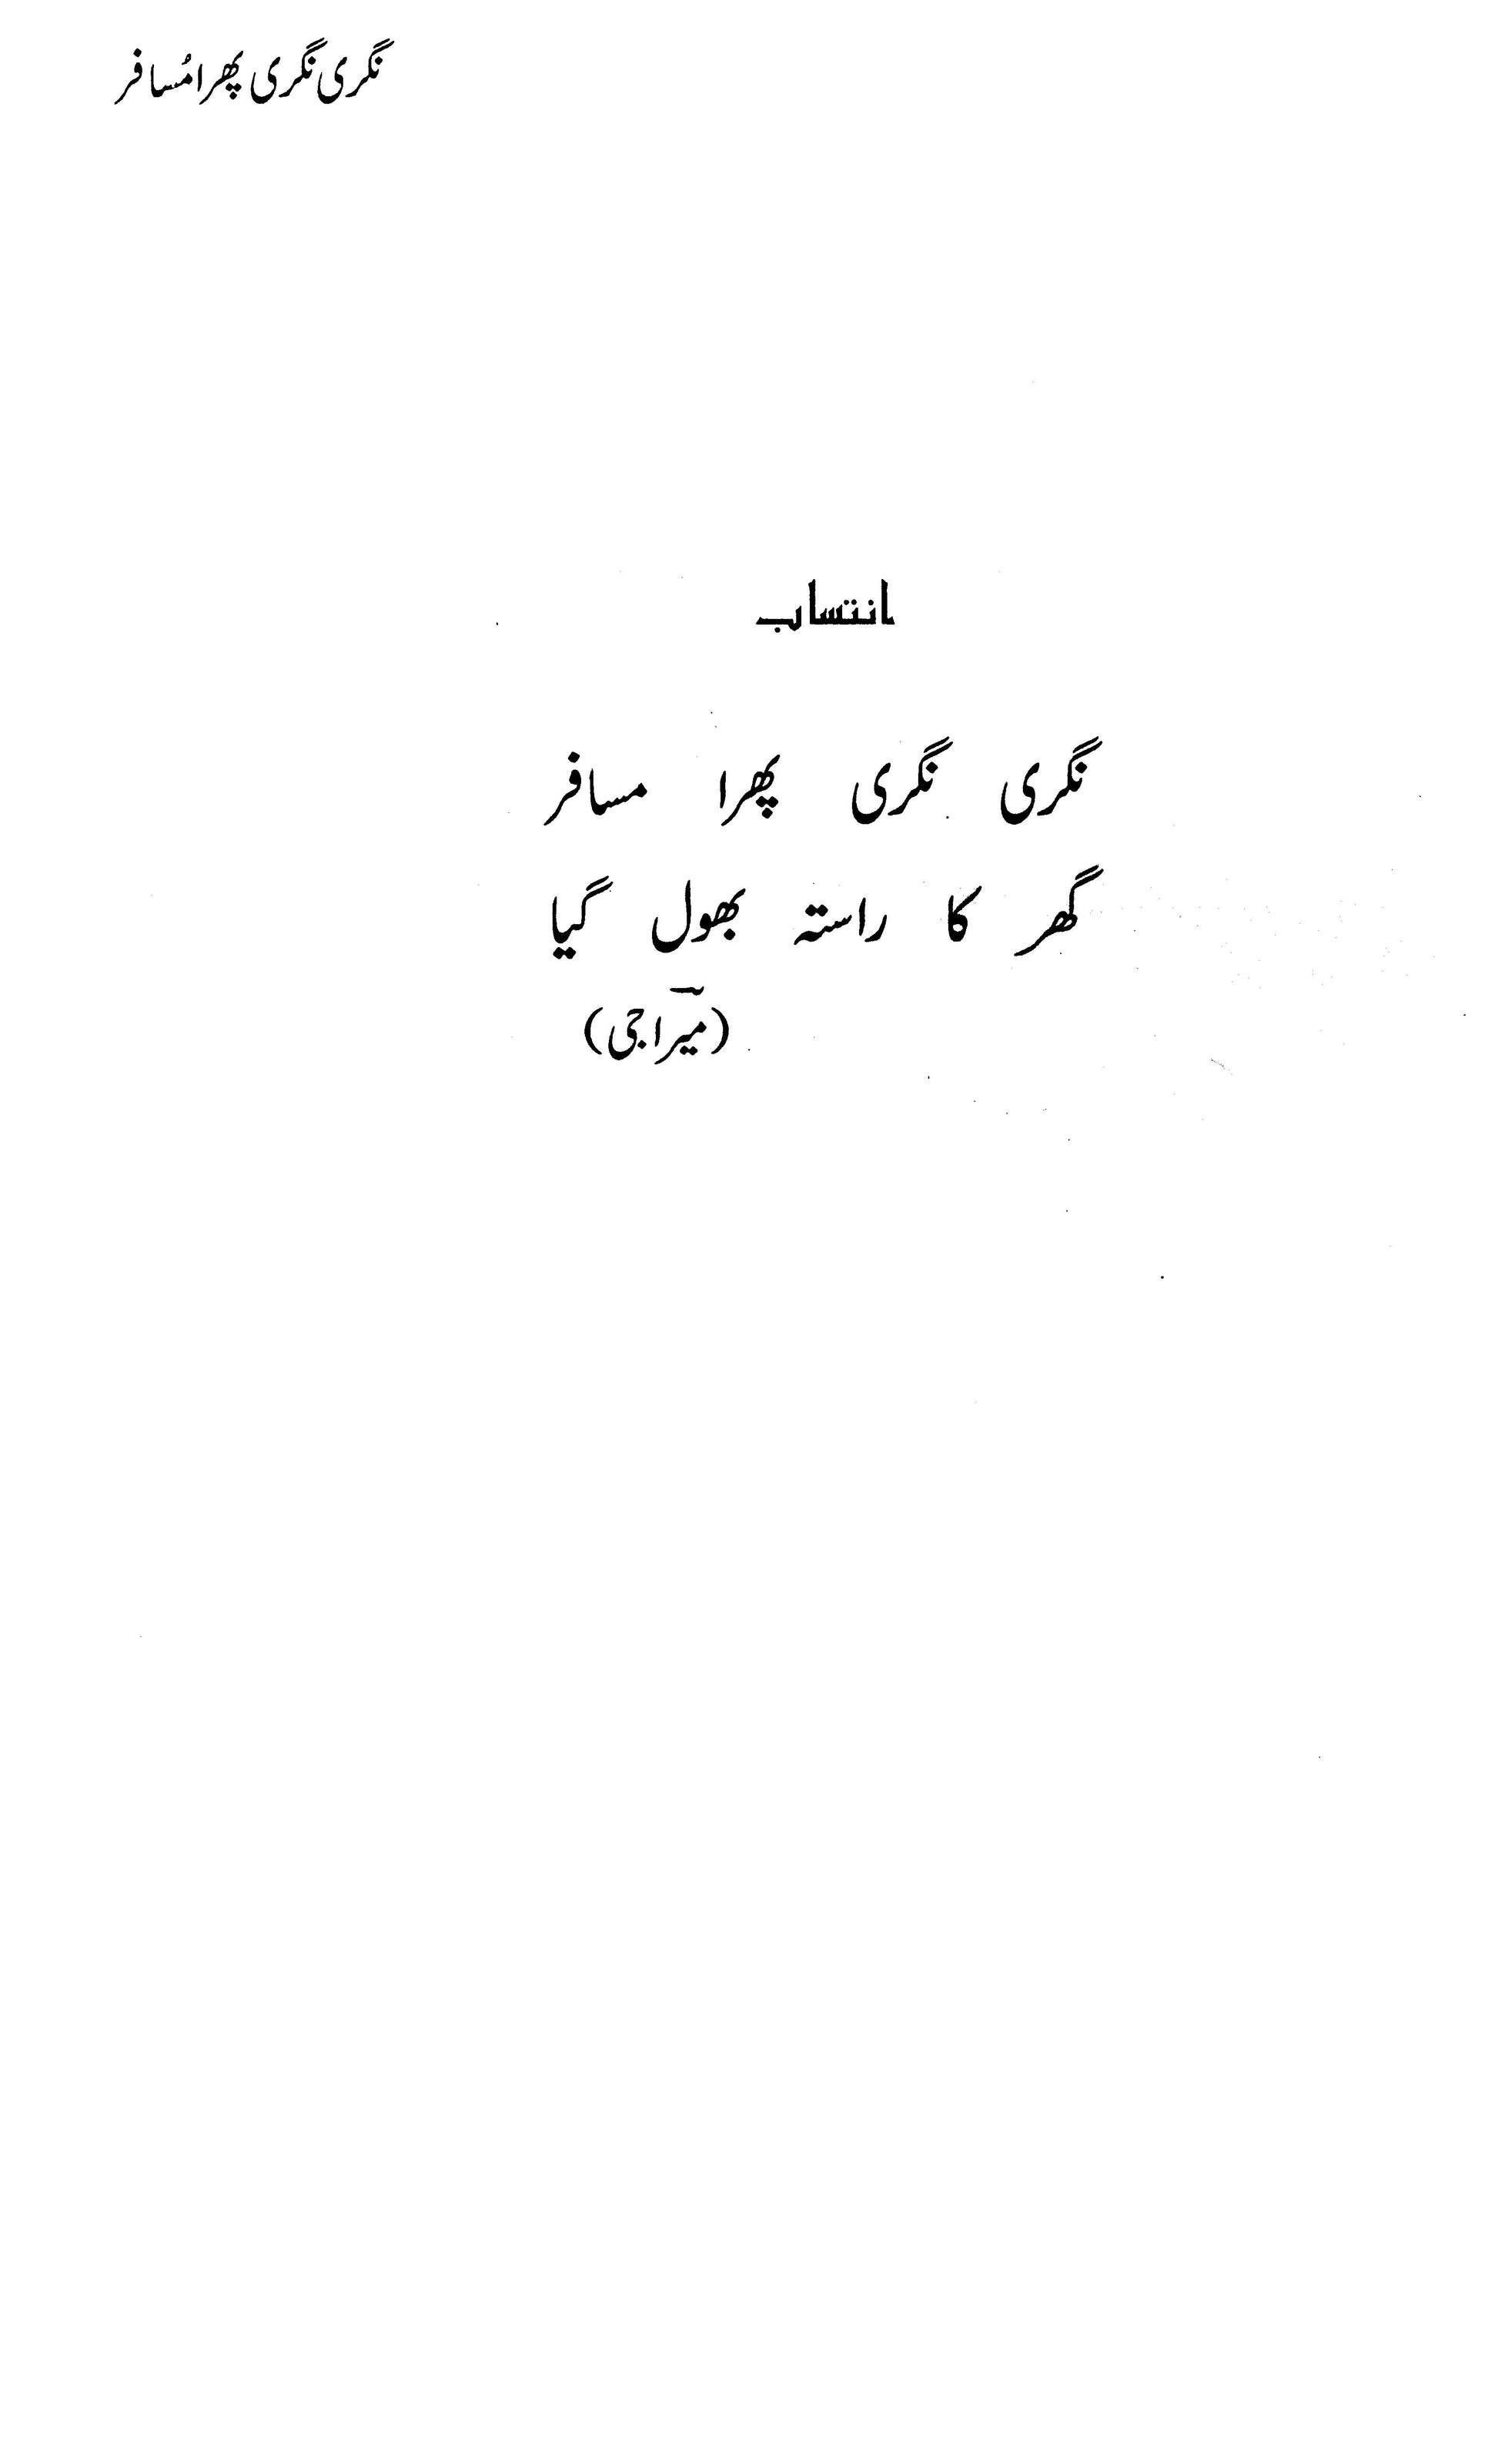 نگری نگری پھرا مُسافر
انتساب
نگری نگری پھرا مسافر
گھر کا راستہ بھول گیا
(میرا جی)